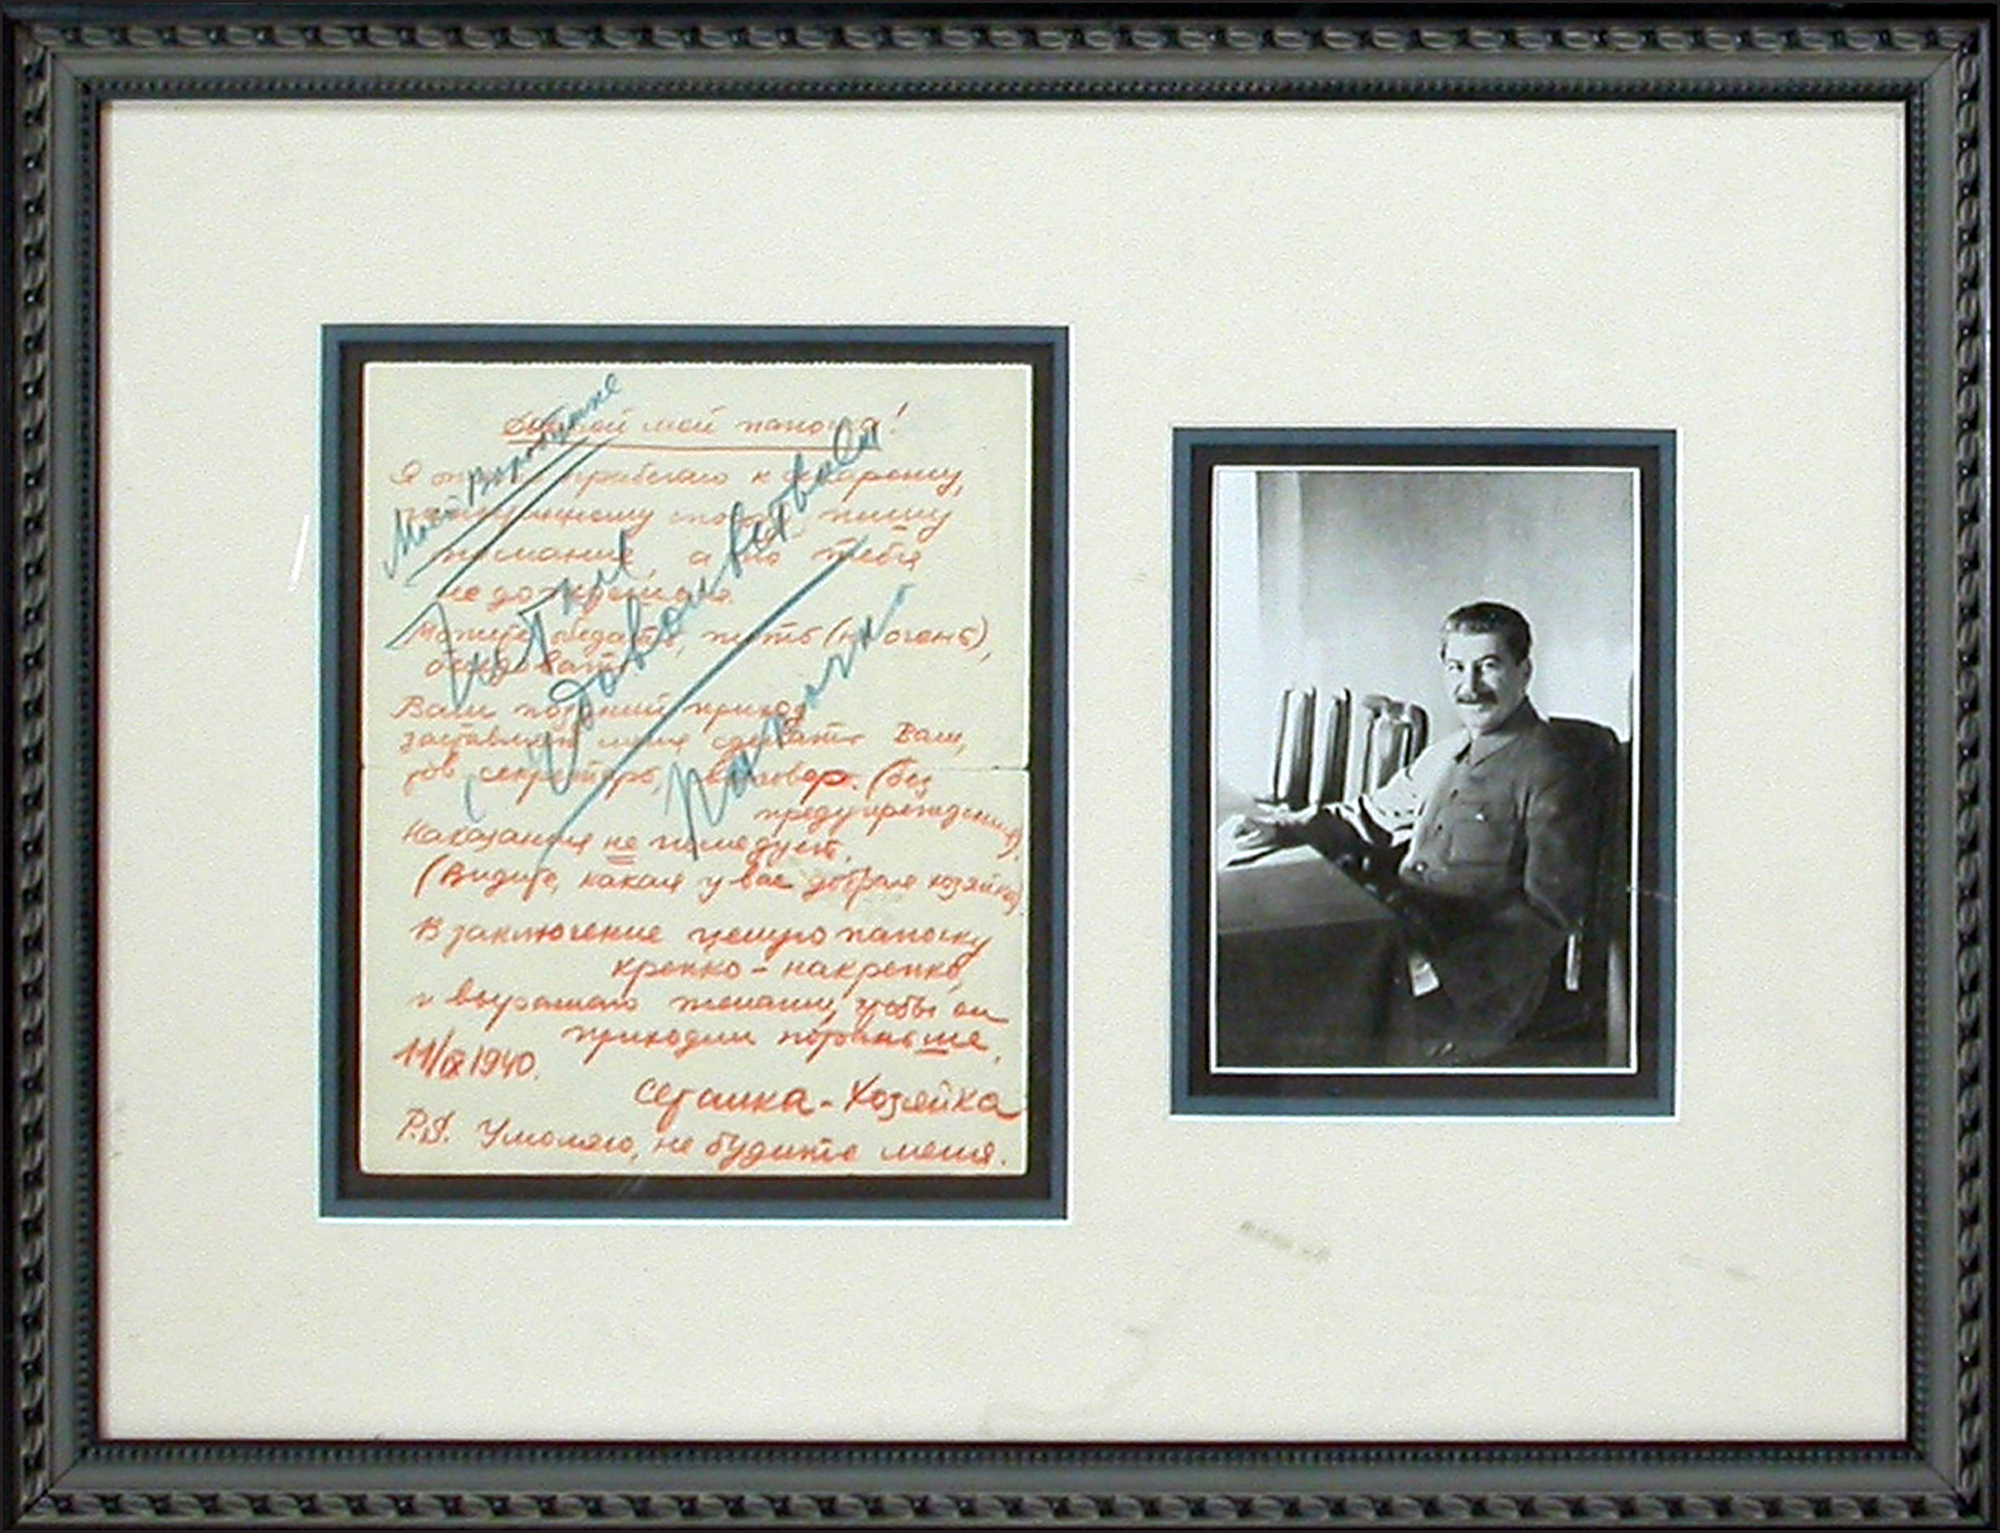 мой папочка!
Я опять прибегаю к старому,
испытанному способу пишу
послание, а то тебя
не дождешься.
Можете обедать, пить (не очень),
беседовать.
Ваш поздний приход
заставляет меня сделать Вам,
тов. секретарь, выговор. (без
предупреждения)
Наказания не последует.
(Видите, какая у вас добрая хозяйка)
В заключение целую папочку
крепко-накрепко,
и выражаю желание, чтобы он
приходил пораньше.
11/IX 1940.
Сетанка-Хозяйка
P.S. Умоляю, не будите меня.
Моей Воробушке
Читал
с удовольствием
Папочка